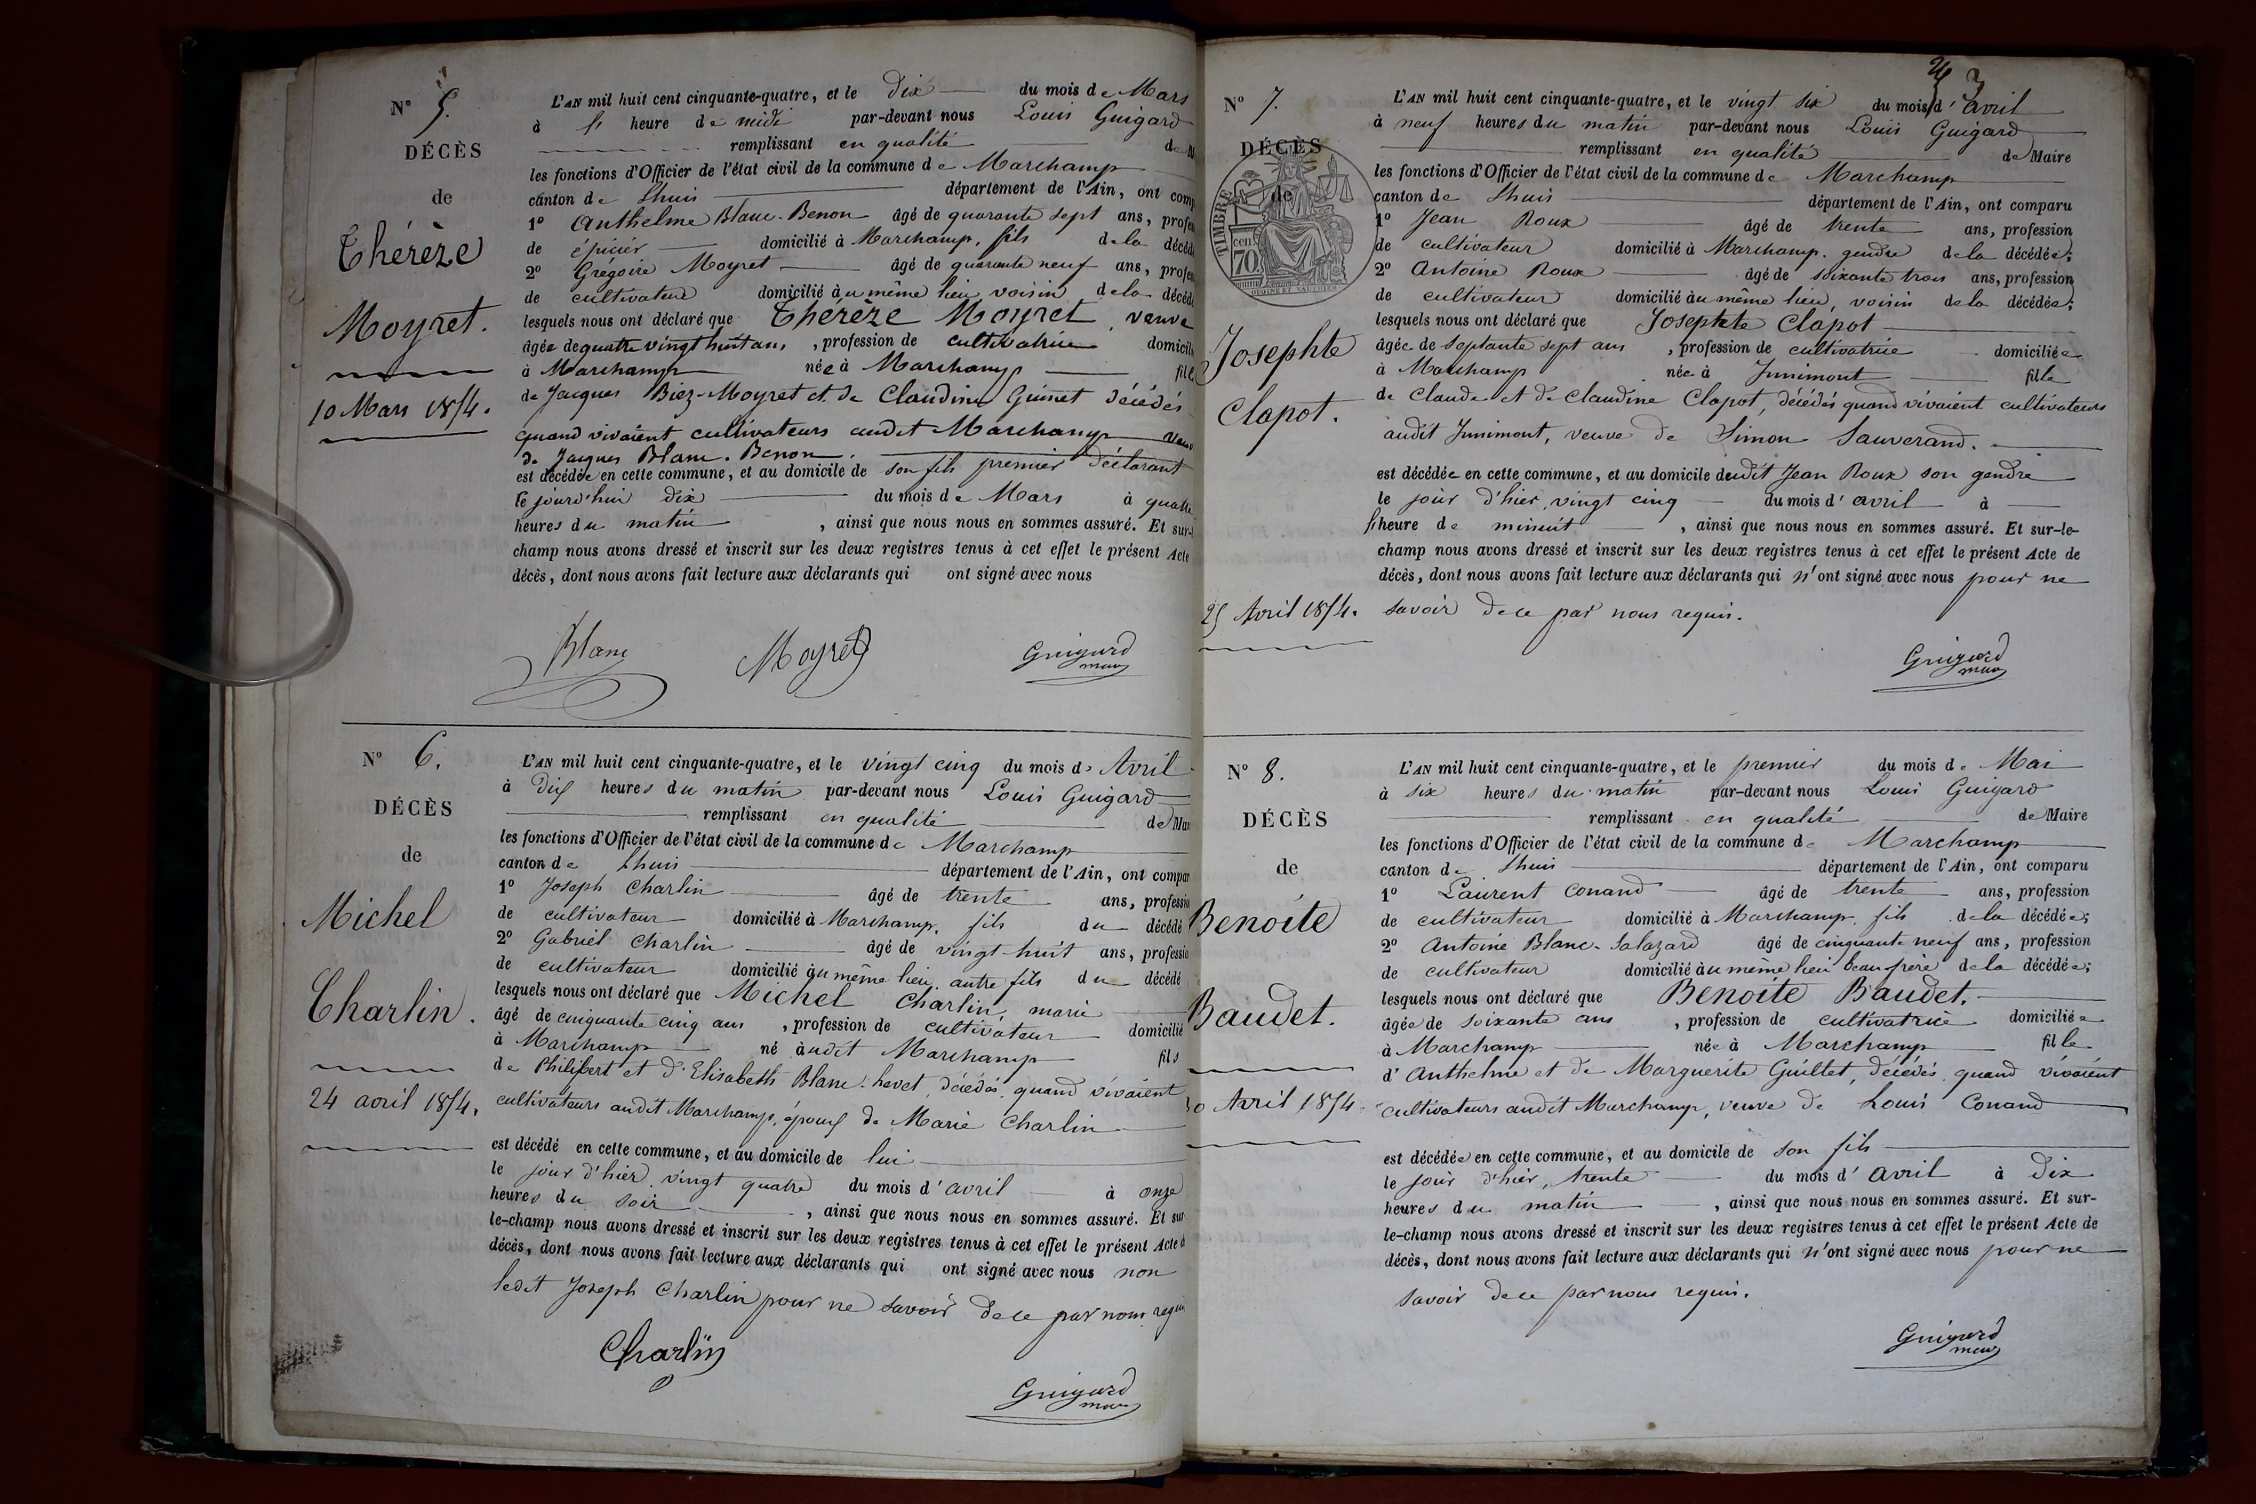 Nº 5.
DÉCÈS
de
Thérèze
Moyret.
10 Mars 1854.
L'AN mil huit cent cinquante-quatre, et le dix du mois de Mars
à heure de midi par-devant nous Louis Guigard
remplissant en qualité de
les fonctions d'Officier de l'état civil de la commune de Marchamp
canton de Lhuis département de l'Ain, ont comp
1º Anthelme Blanc-Benon âgé de quarante sept ans, profes
de épicier domicilié à Marchamp, fils de la décédé
2º Grégoire Moyret âgé de quarante neuf ans, profes
de cultivateur domicilié àu même lieu, voisin de la décédé
lesquels nous ont déclaré que Thérèze Moyret, veuve
âgée de quatre vingt huit ans, profession de cultivatrice domicili
à Marchamp née à Marchamp fille
de Jacques Biez-Moyret et de Claudine Guinet décédés
quand vivaient cultivateurs audit Marchamp veuve
de Jacques Blanc-Benon.
est décédée en cette commune, et au domicile de son fils premier déclarant
le jourd'hui dix du mois de Mars à quatre
heures du matin, ainsi que nous nous en sommes assuré. Et sur-
champ nous avons dressé et inscrit sur les deux registres tenus à cet effet le présent Acte
décès, dont nous avons fait lecture aux déclarants qui ont signé avec nous
Blanc Moyret Guigard
maire
Nº 6.
DÉCÈS
de
Michel
Charlin.
24 avril 1854.
L'AN mil huit cent cinquante-quatre, et le vingt cinq du mois d' Avril
à dix heures du matin par-devant nous Louis Guigard
remplissant en qualité de Mai
les fonctions d'Officier de l'état civil de la commune de Marchamp
canton de Lhuis département de l'Ain, ont compar
1º Joseph Charlin âgé de trente ans, professio
de cultivateur domicilié à Marchamp, fils du décédé
2º Gabriel Charlin âgé de vingt huit ans, professio
de cultivateur domicilié àu même lieu, autre fils du décédé
lesquels nous ont déclaré que Michel Charlin, marié
âgé de cinquante cinq ans, profession de cultivateur domicilié
à Marchamp né àudit Marchamp fils
de Philibert et d'Elisabeth Blanc-hevet, décédés, quand vivaient
cultivateurs audit Marchamp, époux de Marie Charlin
est décédé en cette commune, et au domicile de lui
le jour d'hier, vingt quatre du mois d'avril à onze
heures du soir, ainsi que nous nous en sommes assuré. Et sur
le-champ nous avons dressé et inscrit sur les deux registres tenus à cet effet le présent Acte d
décès, dont nous avons fait lecture aux déclarants qui ont signé avec nous non
ledit Joseph Charlin pour ne savoir de ce par nous requis
Charlin
Guigard
maire
3
Nº 7.
DÉCÈS
de
TIMBRE
cen.
70
Josephte
Clapot.
25 Avril 1854.
L'AN mil huit cent cinquante-quatre, et le vingt six du mois d'avril
à neuf heures du matin par-devant nous Louis Guigard
remplissant en qualité de Maire
les fonctions d'Officier de l'état civil de la commune de Marchamp
canton de Lhuis département de l'Ain, ont comparu
1º Jean Roux âgé de trente ans, profession
de cultivateur domicilié à Marchamp, gendre de la décédée;
2º Antoine Roux âgé de soixante trois ans, profession
de cultivateur domicilié àu même lieu, voisin de la décédée;
lesquels nous ont déclaré que Josephte Clapot
âgée de septante sept ans, profession de cultivatrice domiciliée
à Marchamp née à Junimont fille
de Claude et de Claudine Clapot, décédés quand vivaient cultivateurs
audit Junimont, veuve de Simon Sauverand.
est décédée en cette commune, et au domicile dudit Jean Roux son gendre
le jour d'hier, vingt cinq du mois d'avril à
heure de minuit, ainsi que nous nous en sommes assuré. Et sur-le-
champ nous avons dressé et inscrit sur les deux registres tenus à cet effet le présent Acte de
décès, dont nous avons fait lecture aux déclarants qui n'ont signé avec nous pour ne
savoir de ce par nous requis.
Guigard
maire
Nº 8.
DÉCÈS
de
Benoite
Baudet.
30 Avril 1854.
L'AN mil huit cent cinquante-quatre, et le premier du mois de Mai
à six heures du matin par-devant nous Louis Guigard
remplissant en qualité de Maire
les fonctions d'Officier de l'état civil de la commune de Marchamp
canton de Lhuis département de l'Ain, ont comparu
1º Laurent Conand âgé de trente ans, profession
de cultivateur domicilié à Marchamp, fils de la décédée;
2º Antoine Blanc-Salazard âgé de cinquante neuf ans, profession
de cultivateur domicilié àu même lieu beau frère de la décédée;
lesquels nous ont déclaré que Benoite Baudet.
âgée de soixante ans, profession de cultivatrice domiciliée
à Marchamp née à Marchamp fille
d'Anthelme et de Marguerite Guillet, décédés, quand vivaient
cultivateurs audit Marchamp, veuve de Louis Conand
est décédée en cette commune, et au domicile de son fils
le jour d'hier, trente du mois d'avril à dix
heures du matin, ainsi que nous nous en sommes assuré. Et sur-
le-champ nous avons dressé et inscrit sur les deux registres tenus à cet effet le présent Acte de
décès, dont nous avons fait lecture aux déclarants qui n'ont signé avec nous pour ne
savoir de ce par nous requis.
Guigard
maire